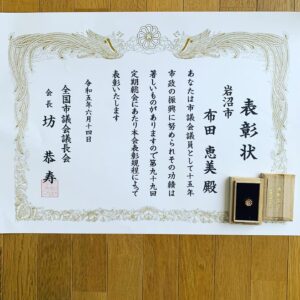 表彰状
岩沼市
布田 恵美 殿
あなたは市議会議員として十五年
市政の振興に努められその功績は
著しいものがありますので第九十九回
定期総会にあたり本会表彰規程によって
表彰いたします
令和五年六月十四日
全国市議会議長会
会長 坊 恭寿